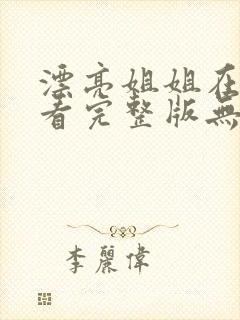 漂亮姐姐在
看完整版無
李麗偉